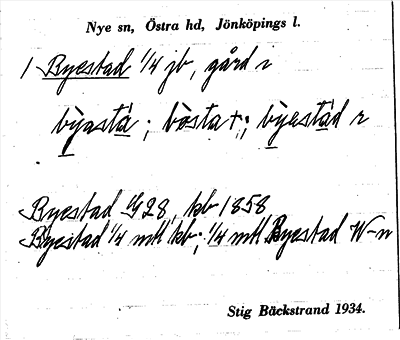 Nye sn, Östra hd, Jönköpings l.
1 Byestad 1/4 jb, gård i
byasta ; bòsta +; ; byestad r
Byestad 1728, kb 1858
Byestad 1/4 mtl kb; 1/4 mtl Byestad W-n
Stig Bäckstrand 1934.